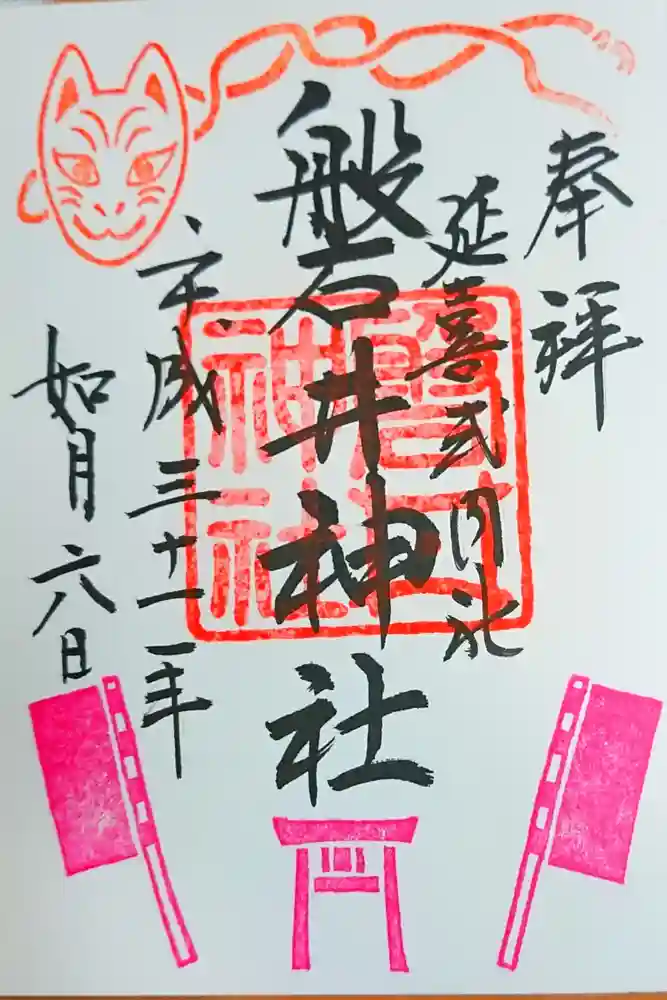 奉拝
延喜式内社
磐井神社
平成三十一年
如月六日
磐井
神社